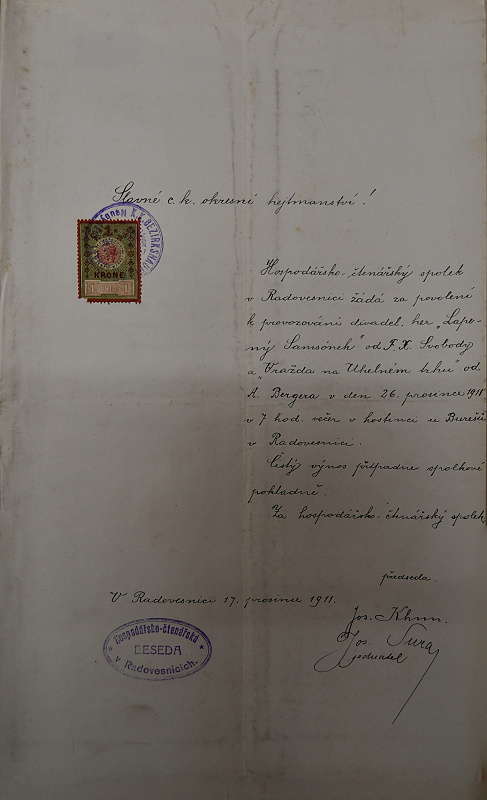 Slavné c. k. okresní hejtmanství!
K.K. BEZIRKSHAU
1
KRONE
1 1
Hospodářsko-čtenářský spolek
v Radovesnici žádá za povolení
k provozování divadel. her „Lape-
ný Samsónek" od F. X. Svobody
a „Vražda na Uhelném trhu" od
A. Bergera v den 26. prosince 1911
v 7 hod. večer v hostinci u Bureši
v Radovesnici.
Čistý výnos připadne spolkové
pokladně.
Za hospodářsko-čtenářský spolek
předseda.
V Radovesnici 17. prosince 1911.
Jos. Khun.
Jos. Sura
jednatel
Hospodářsko-čtenářská
BESEDA
v Radovesnicích.